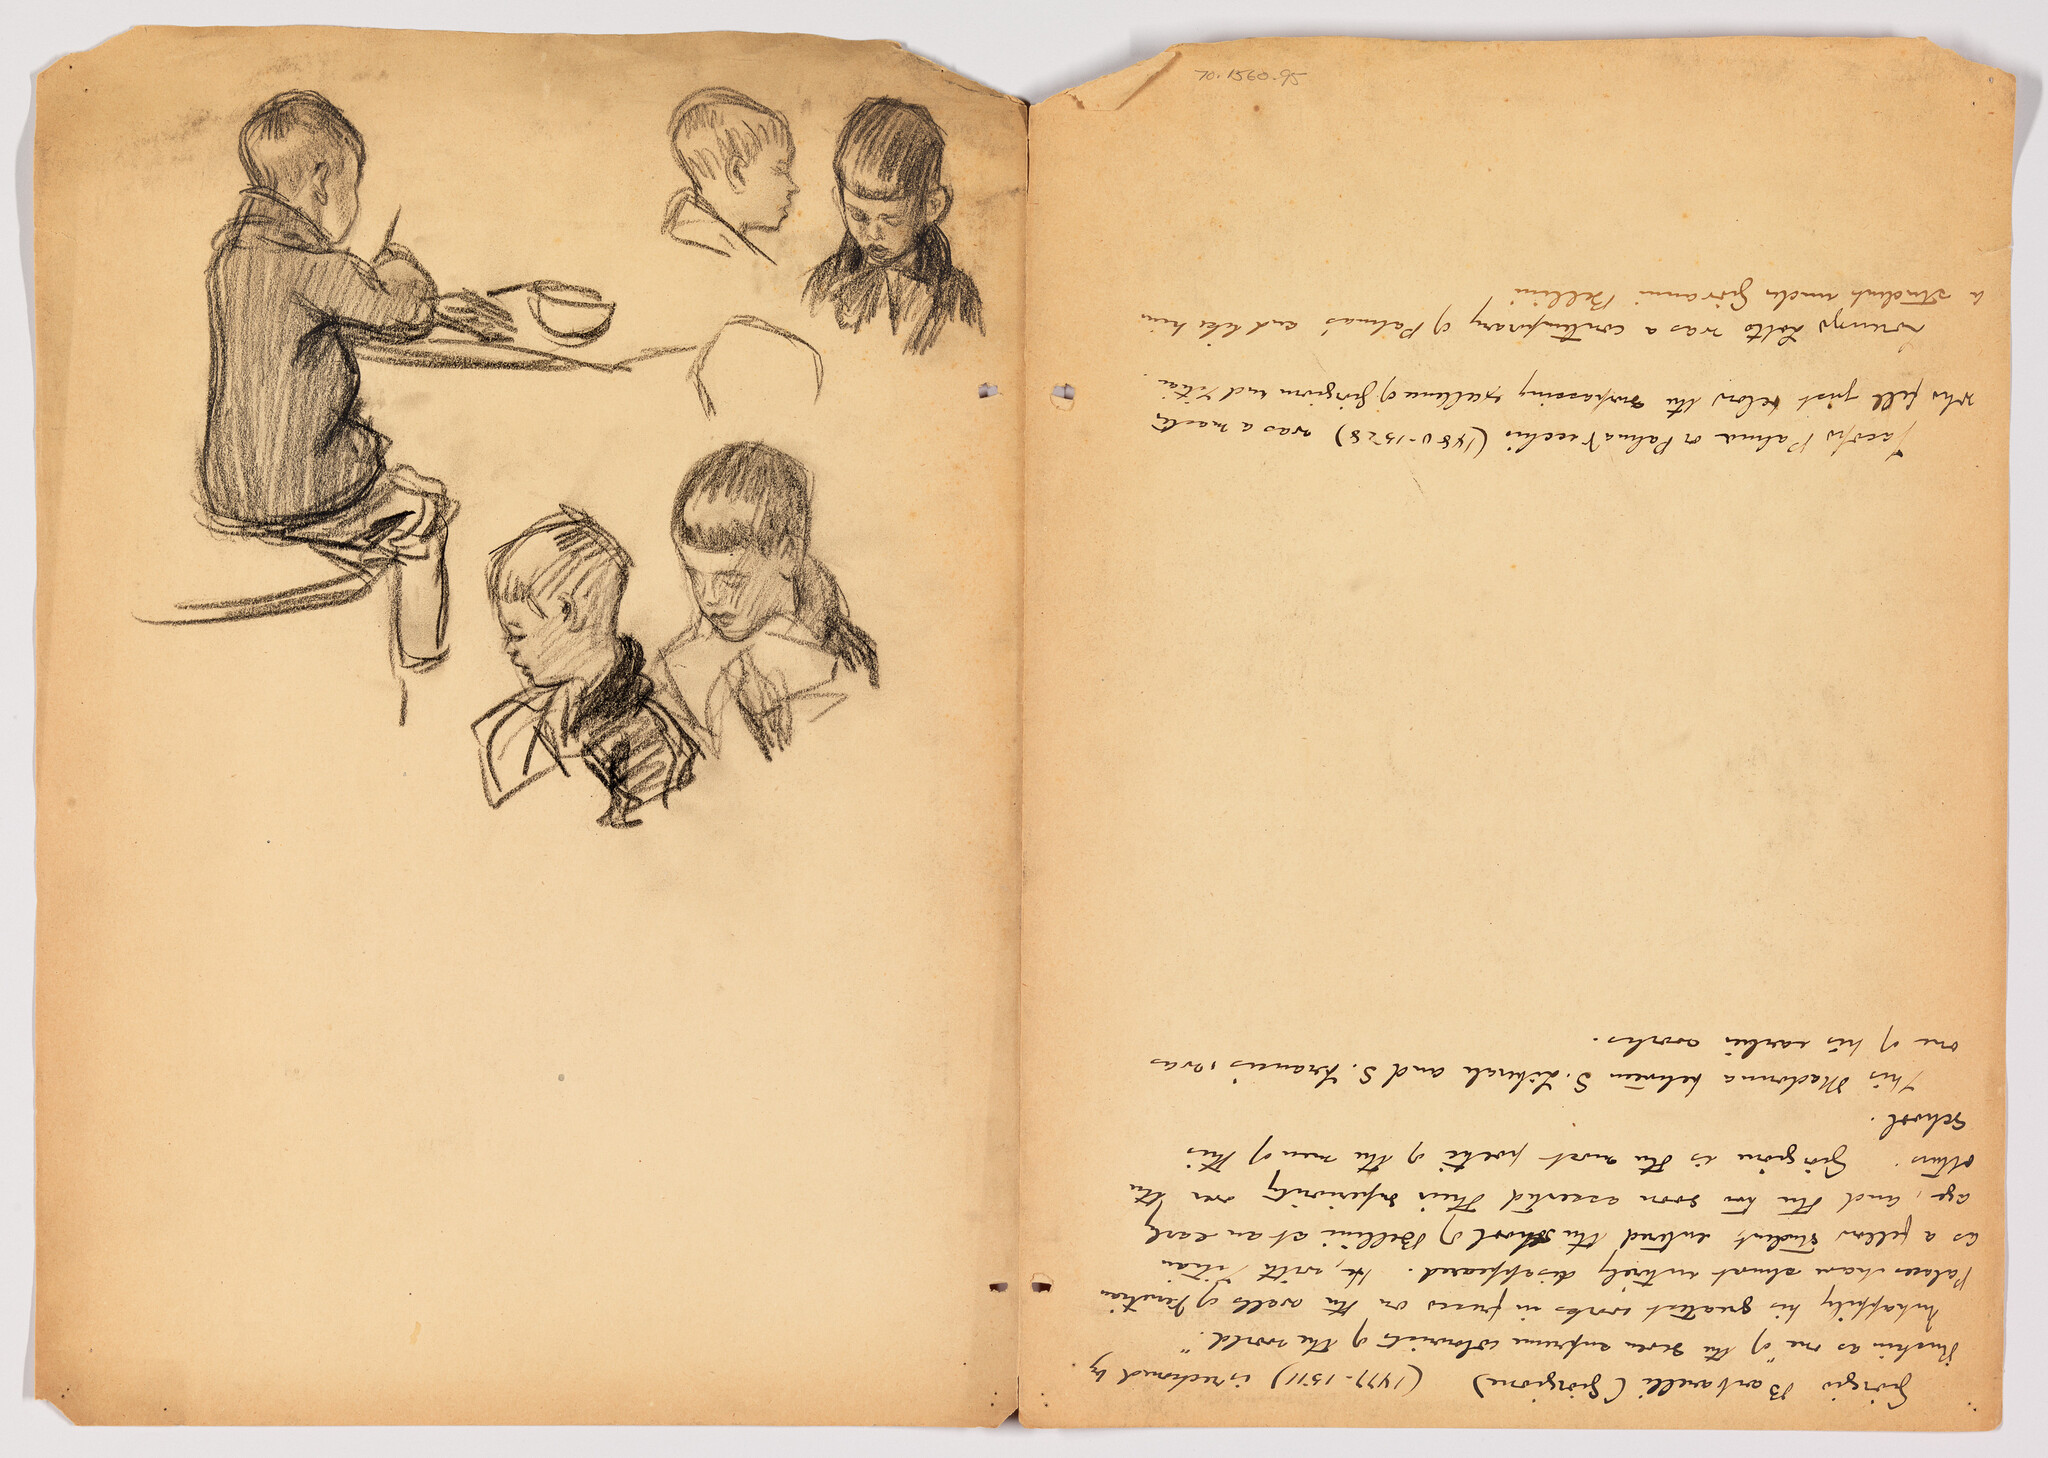 70.1560.95
Giorgio Barbarelli (Giorgione) (1477-1511) is reckoned by
Ruskin as one "of the seven supreme colourists of the world."
Unhappily his greatest works in fresco on the walls of Venetian
Palaces have almost entirely disappeared. He, with Titian
as a fellow student, entered the School of Bellini at an early
age, and the two soon asserted their superiority over the
others. Giorgione is the most poetic of the men of this
School.
This Madonna between S. Liberale and S. Francis, was
one of his earlier works.
Jacopo Palma or Palma Vecchio (1480-1528) was a master
who fell just below the surpassing excellence of Giorgione and Titian.
Lorenzo Lotto was a contemporary of Palmas and like him
a student under Giovanni Bellini